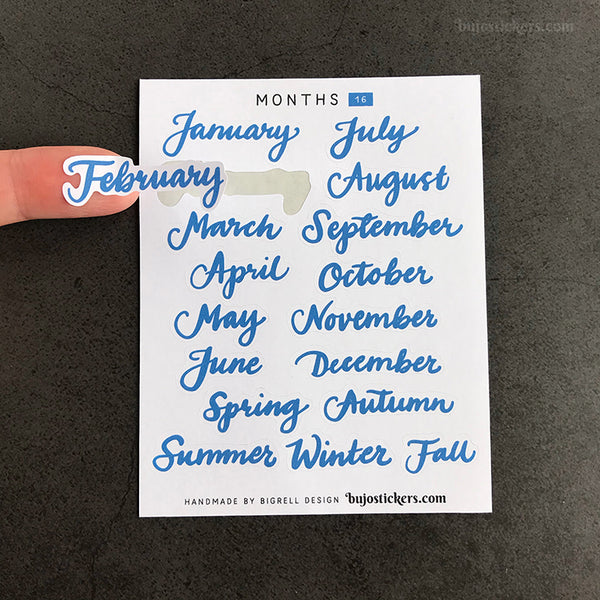 bujostickers.com
MONTHS 16
January July
February August
March September
April October
May November
June December
Spring Autumn
Summer Winter Fall
HANDMADE BY BIGRELL DESIGN bujostickers.com